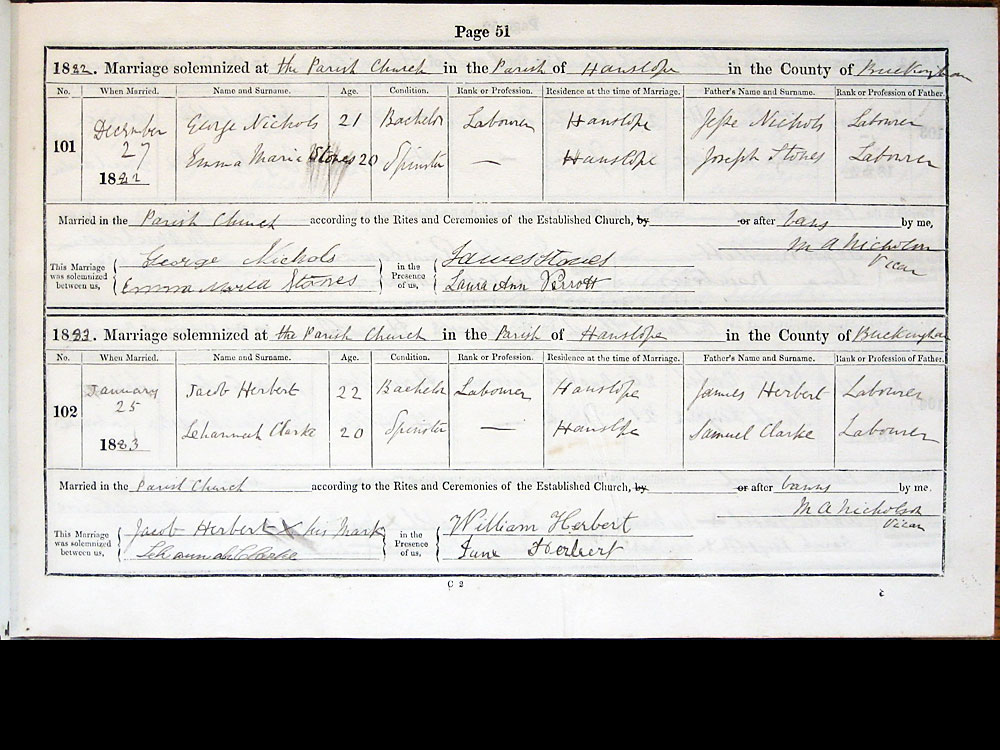 Page 51
1882. Marriage solemnized at the Parish Church in the Parish of Hanslope in the County of Buckingham
No. When Married. Name and Surname. Age. Condition. Rank or Profession. Residence at the time of Marriage. Father's Name and Surname. Rank or Profession of Father.
101 December 27 1882 George Nichols 21 Bachelor Labourer Hanslope Jesse Nichols Labourer
Emma Maria Stones 20 Spinster — Hanslope Joseph Stones Labourer
Married in the Parish Church according to the Rites and Ceremonies of the Established Church, by or after bans by me,
M A Nicholson
Vicar
This Marriage was solemnized between us, George Nichols in the Presence of us, James Stones
Emma Maria Stones Laura Ann Perrott
1883. Marriage solemnized at the Parish Church in the Parish of Hanslope in the County of Buckingham
No. When Married. Name and Surname. Age. Condition. Rank or Profession. Residence at the time of Marriage. Father's Name and Surname. Rank or Profession of Father.
102 January 25 1883 Jacob Herbert 22 Bachelor Labourer Hanslope James Herbert Labourer
Clarke 20 Spinster — Hanslope Samuel Clarke Labourer
Married in the Parish Church according to the Rites and Ceremonies of the Established Church, by or after banns by me.
M A Nicholson
Vicar
This Marriage was solemnized between us, Jacob Herbert X his Mark in the Presence of us, William Herbert
Clarke Jane Herbert
C 2